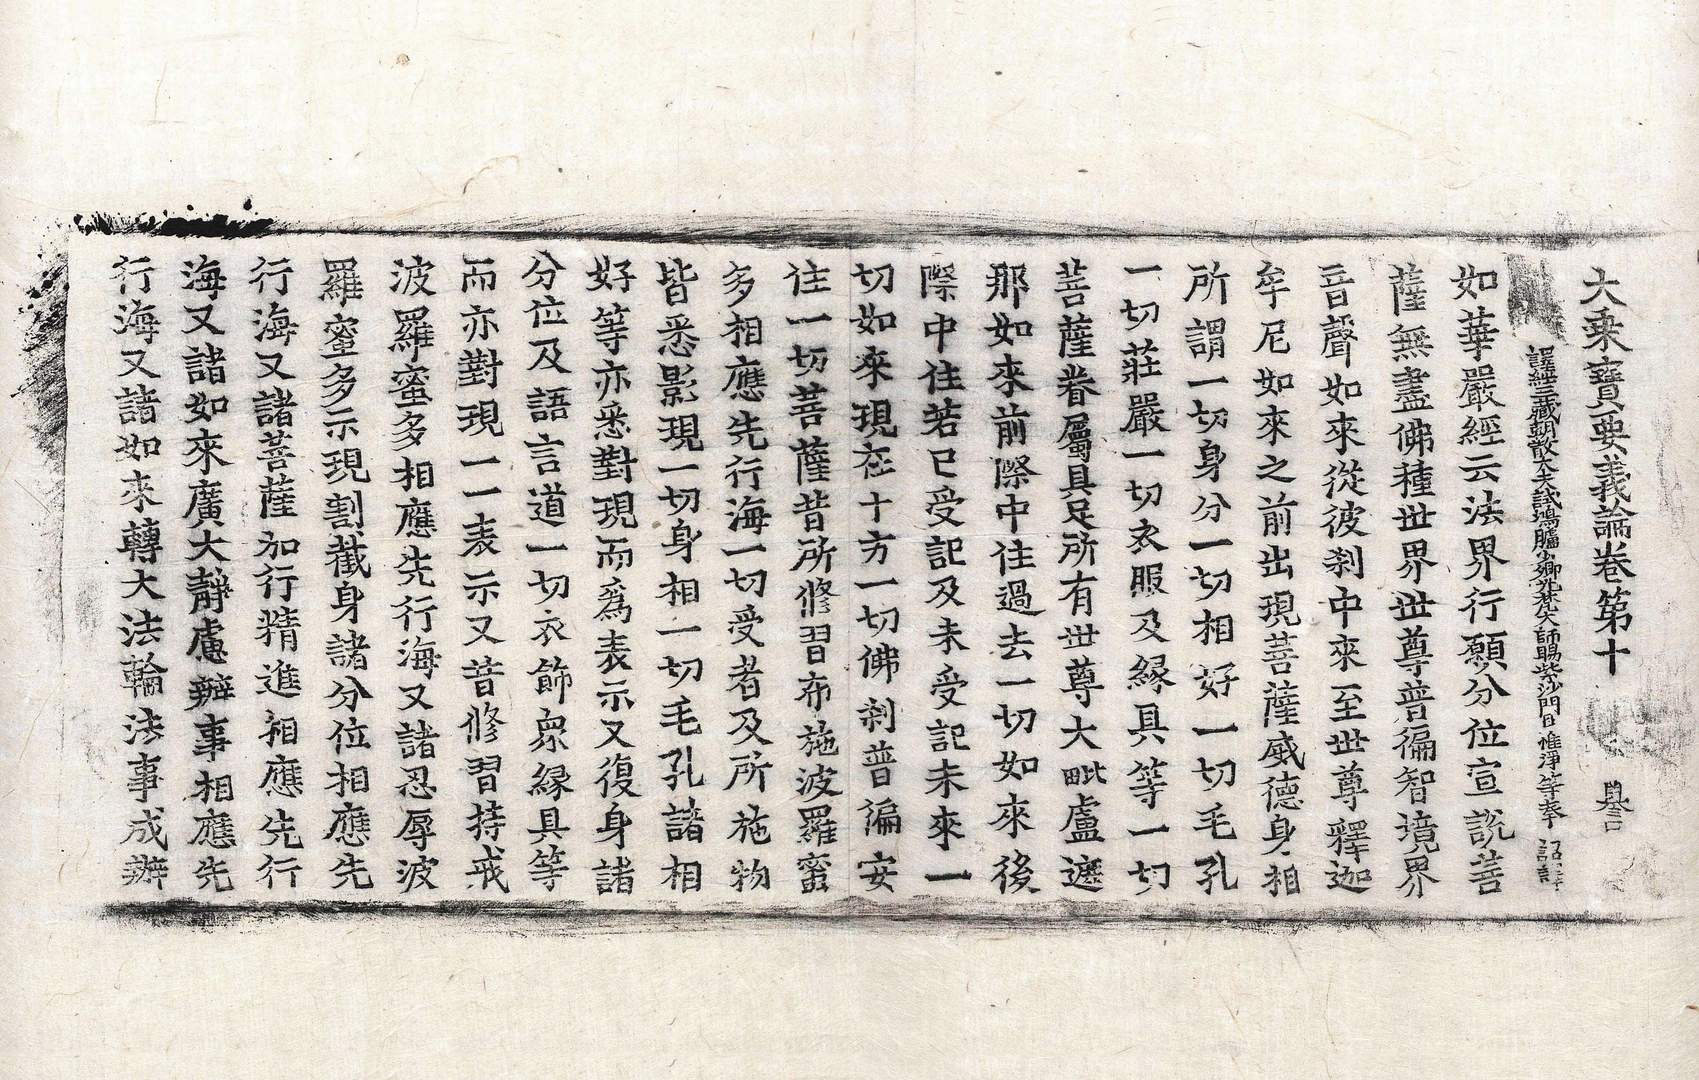 大乘寶要義論卷第十 墓
譯經三藏朝散大夫試鴻臚少卿光梵大師賜紫沙門臣惟淨等奉 詔譯
如華嚴經云法界行願分位宣說菩
薩無盡佛種世界世尊普徧智境界
音聲如來從彼剎中來至世尊釋迦
牟尼如來之前出現菩薩威德身相
所謂一切身分一切相好一切毛孔
一切莊嚴一切衣服及緣具等一切
菩薩眷屬具足所有世尊大毗盧遮
那如來前際中住過去一切如來後
際中住若已受記及未受記未來一
切如來現在十方一切佛剎普徧安
住一切菩薩昔所修習布施波羅蜜
多相應先行海一切受者及所施物
皆悉影現一切身相一切毛孔諸相
好等亦悉對現而為表示又復身諸
分位及語言道一切衣飾眾緣具等
而亦對現一一表示又昔修習持戒
波羅蜜多相應先行海又諸忍辱波
羅蜜多示現割截身諸分位相應先
行海又諸菩薩加行精進相應先行
海又諸如來廣大靜慮辦事相應先
行海又諸如來轉大法輪法事成辦